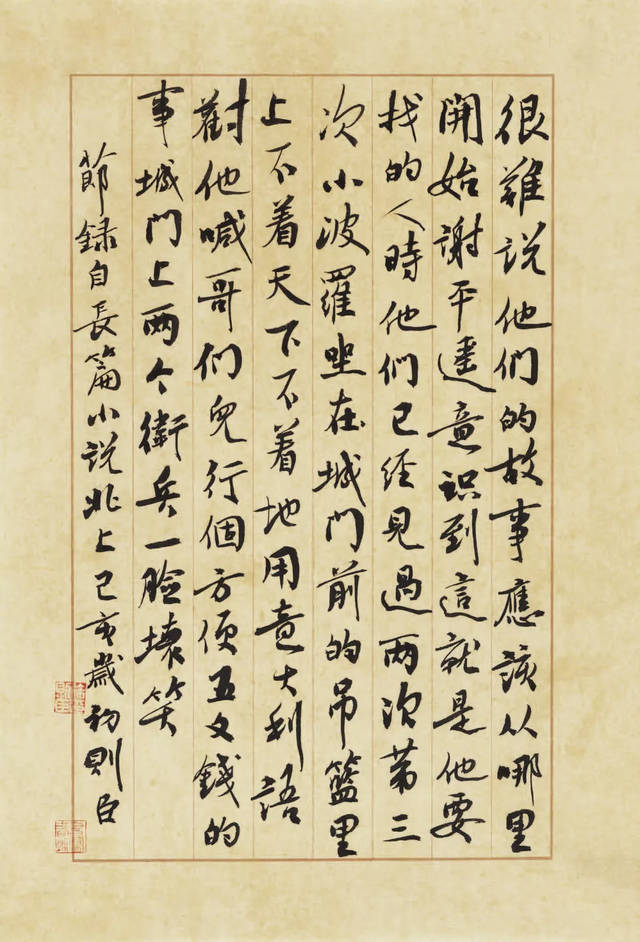 很難说他们的故事應该从哪里
開始谢平遥意识到這就是他要
找的人時他们已经見過两次第三
次小波羅坐在城门前的吊籃里
上不着天下不着地用意大利語
對他喊哥们兒行個方便五文錢的
事城门上两个衛兵一臉壞笑
節録自長篇小说北上己亥歲初則臣